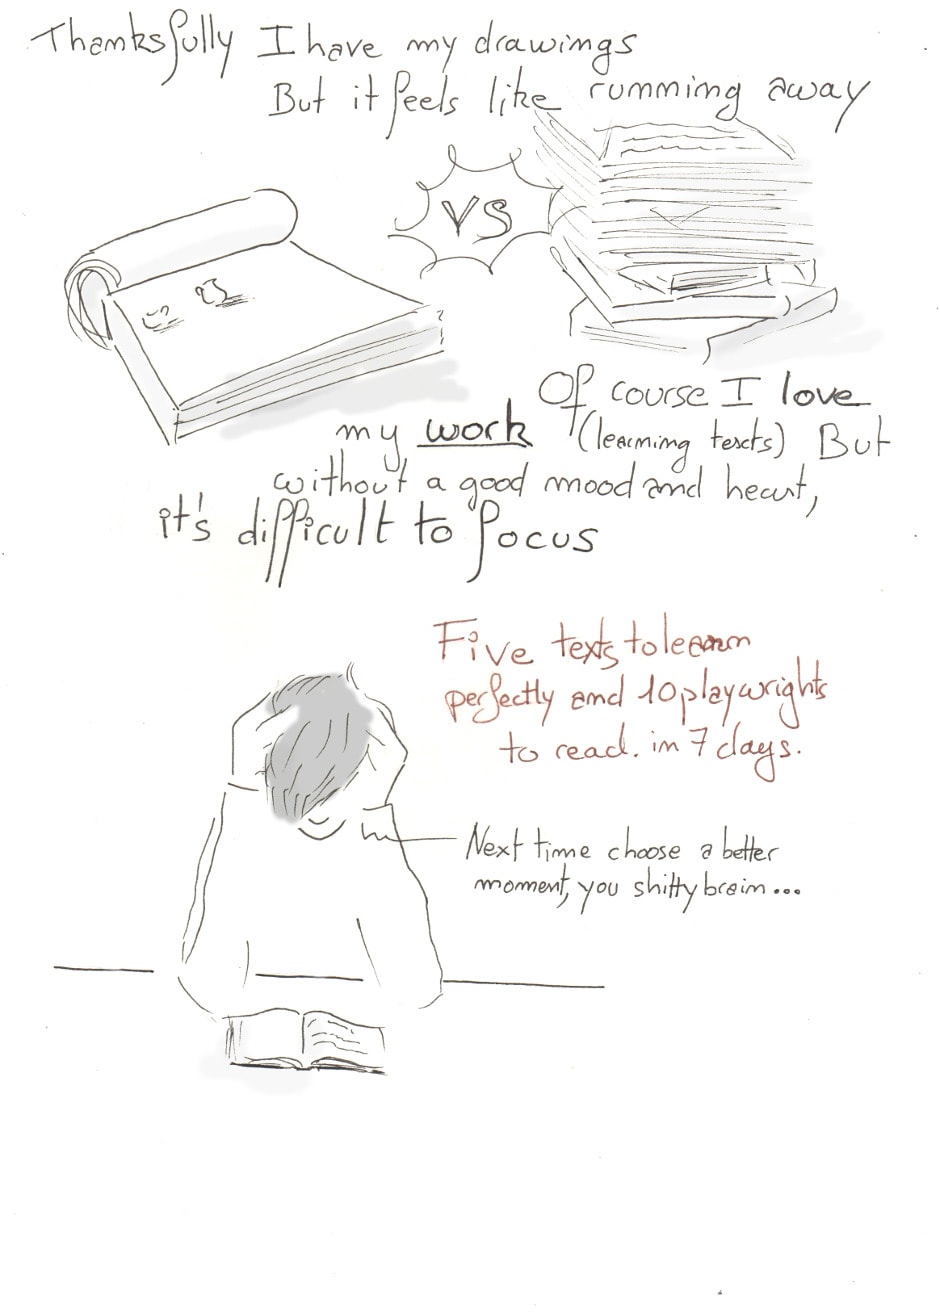 Thanksfully I have my drawings
But it feels like running away
VS
Of course I love
my work (learning texts) But
without a good mood and heart,
it's difficult to focus
Five texts to learn
perfectly and 10 playwrights
to read. in 7 days.
Next time choose a better
moment, you shitty brain...